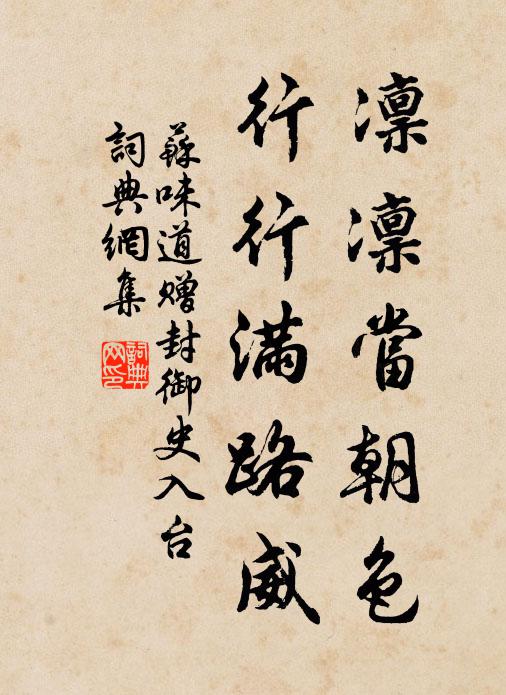 凛凛當朝色
行行满路威
蘇味道赠封御史入台
詞典網集
詞典
网印